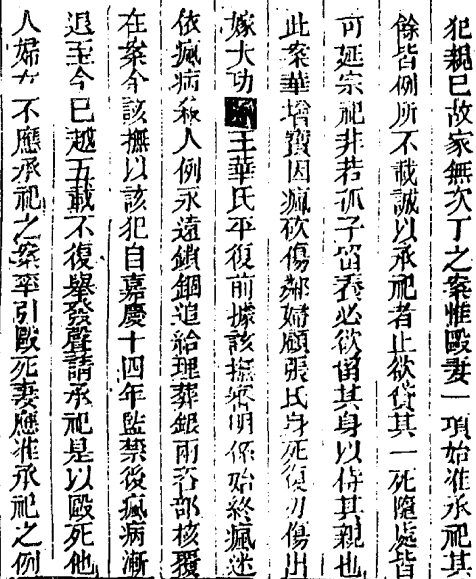 犯親已故家無次丁之案惟毆妻一項始准承祀其
餘皆例所不載誠以承祀者止欲貸其一死隨處皆
可延宗祀非若孤子留養必欲留其身以侍其親也
此案華增寶因瘋砍傷鄰婦顧張氏身死復刃傷出
嫁大功王華氏平復前據該撫審明係始終瘋迷
依瘋病殺人例永遠鎖錮追給埋葬銀兩咨部核覆
在案今該撫以該犯自嘉慶十四年監禁後瘋病漸
退至今已越五載不復舉發聲請承祀是以毆死他
人婦女不應承祀之案率引毆死妻應准承祀之例